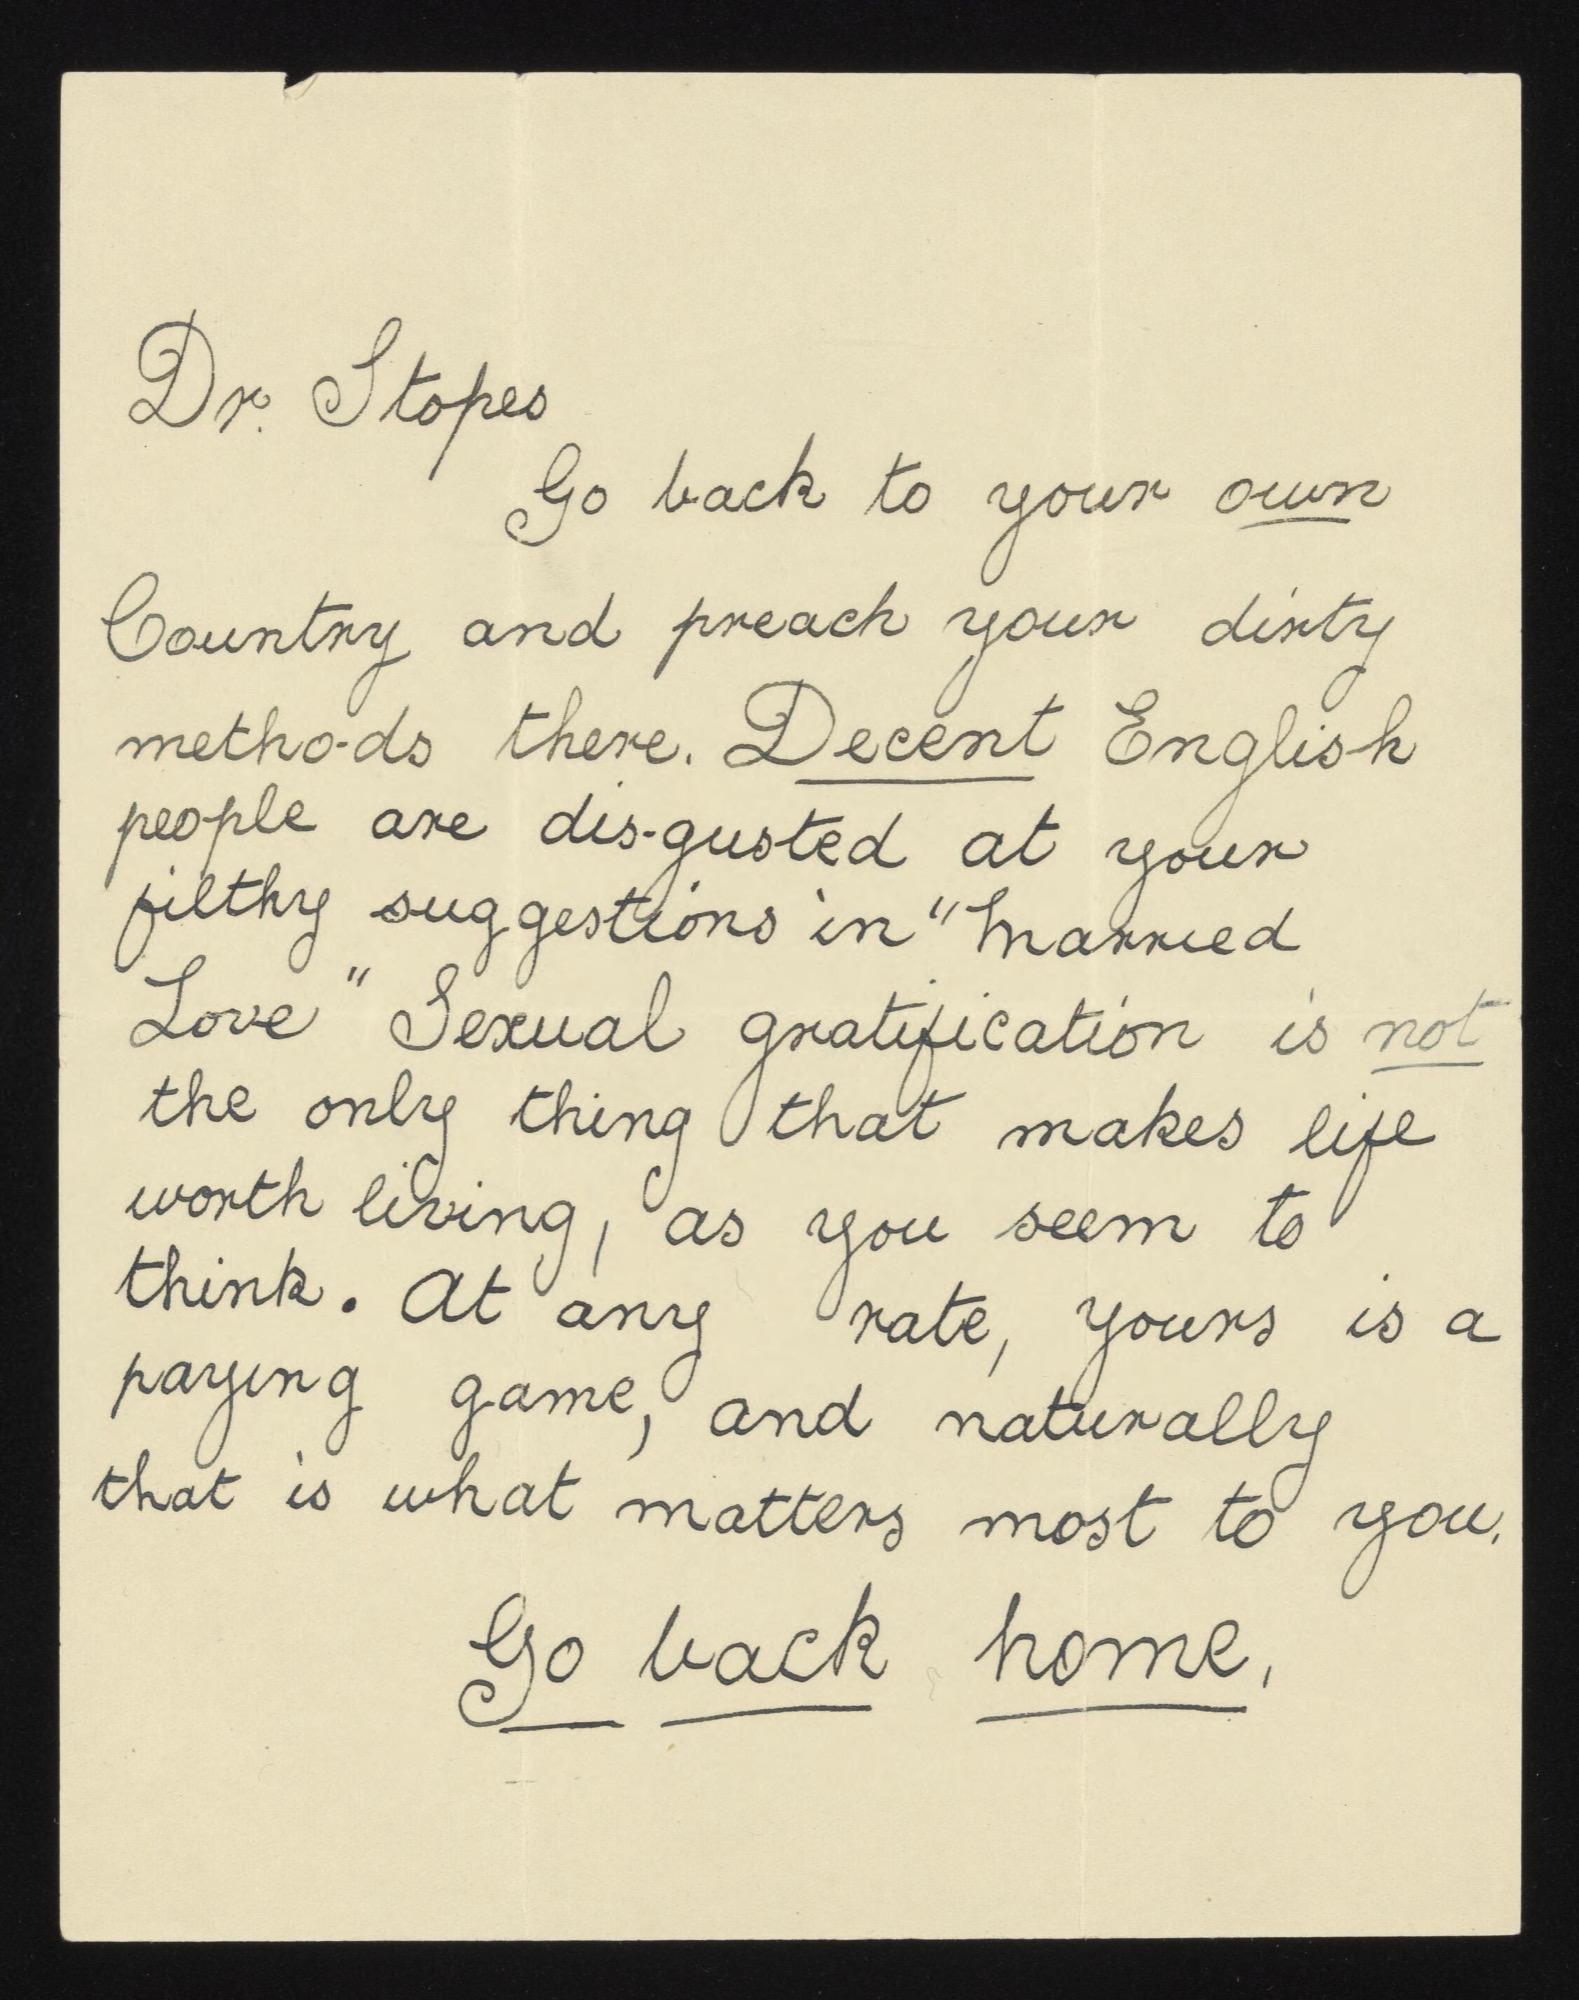 Dr. Stopes
Go back to your own
Country and preach your dirty
metho-ds there. Decent English
people are dis-gusted at your
filthy suggestions in "Married
Love" Sexual gratification is not
the only thing that makes life
worth living, as you seem to
think. At any rate, yours is a
paying game, and naturally
that is what matters most to you.
Go back home.